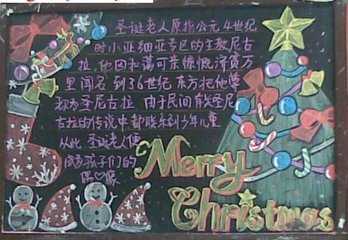 圣诞老人原指公元4世纪
时小亚细亚专区的主教尼古
拉,他因和蔼可亲慷慨济贫万
里闻名 到了6世纪 东方把他尊
称为圣尼古拉 由于民间有关尼
古拉的传说中都联系到少年儿童
从此 圣诞老人便
成为孩子们的
偶像
Merry
Christmas